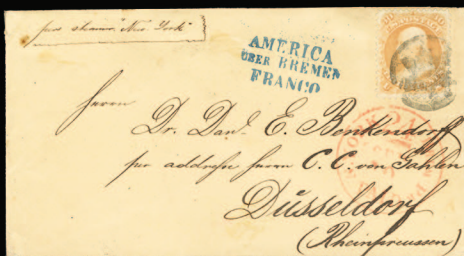 per steamer "New York"
AMERICA
ÜBER BREMEN
FRANCO
Herrn
Dr. Danl. E. Benkendorff
per addresse Herrn C. C. von Gahlen
Düsseldorf
(Rheinpreussen)